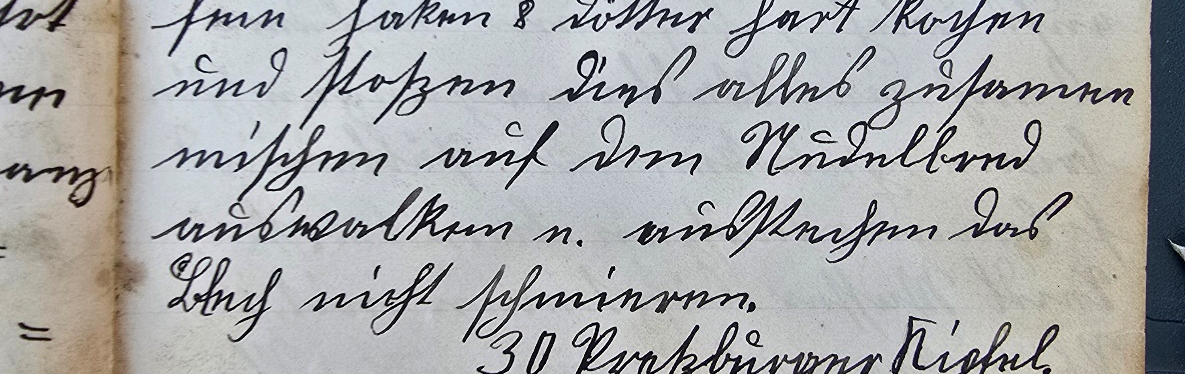 fein haken 8 Dötter hart kochen
und stoßen dies alles zusamen
mischen auf dem Nudelbred
auswalken u. ausstechen das
Blech nicht schmieren.
30 Preßburger Kipfel.